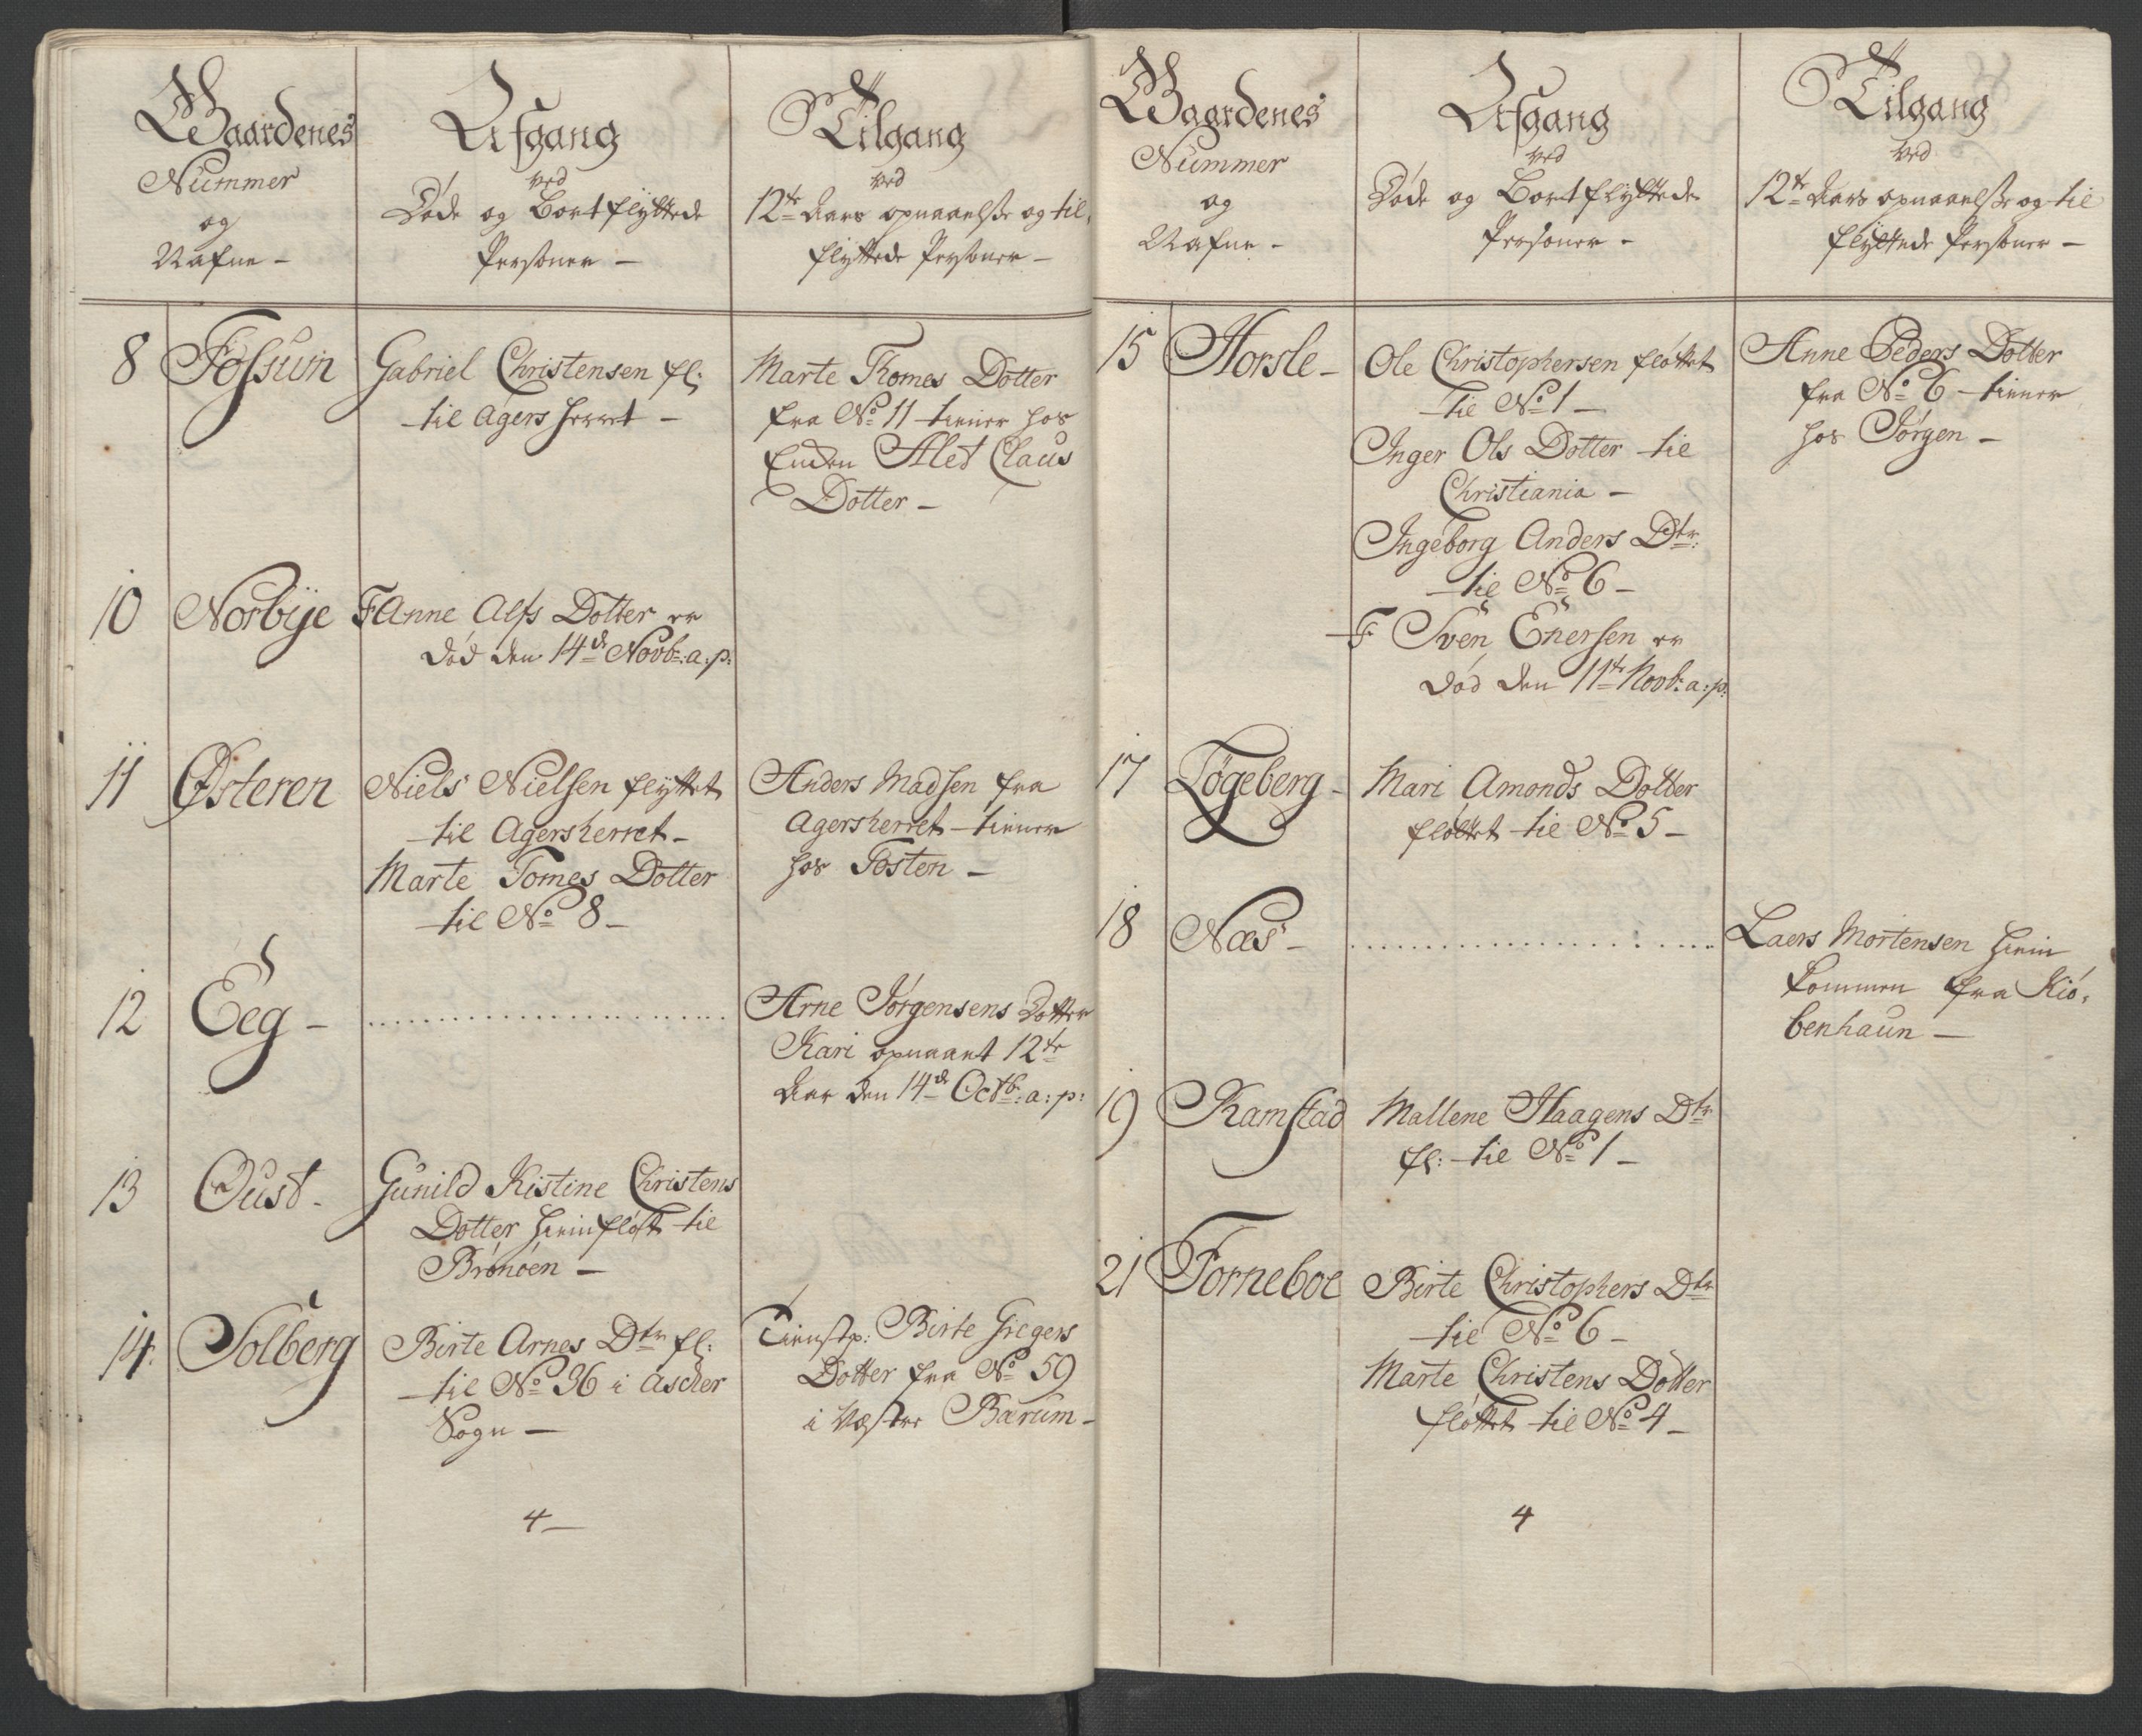 Gaardenes
Nummer
og
Nafne -
Afgang
ved
Døde og Bortflyttede
Personer -
Tilgang
ved
12te Aars opnaaelsse og til-
flyttede Personer -
8 Fossum
Gabriel Christensen fl:
til Agers herret -
Marte Thomes Dotter
fra No 11 tiener hos
Enken Alet Claus
Dotter -
10 Norbye
F Anne Alfs Dotter er
død den 14de Novb: a: p:
11 Østeren
Niels Nielsen flyttet
til Agersherret -
Marte Tomes Dotter
til No 8 -
Anders Madsen fra
Agersherret tiener
hos Tosten -
12 Eeg -
Arne Jørgensens Dotter
Kari opnaaet 12te
Aar den 14de Octb: a: p:
13 Oust -
Gunild Kistine Christens
Dotter hen fløt til
Brønøen -
14. Solberg
Birte Arnes Dtr fl:
til No 36 i Ascher
Sogn -
Tienstp: Birte Gregers
Dotter fra No 59
i Vestre Bærum -
4 -
Gaardenes
Nummer
og
Nafne -
Afgang
ved
Døde og Bortflyttede
Personer -
Tilgang
ved
12te Aars opnaaelsse og til
flyttede Personer -
15 Horsle -
Ole Christophersen fløttet
til No 1 -
Inger Ols Dotter til
Christiania -
Ingeborg Anders Dtr:
til No 6 -
F Sven Enersen er
død den 11te Novb: a: p:
Anne Peders Dotter
fra No 6 tiener
hos Jørgen -
17 Løgeberg -
Mari Amonds Dotter
fløttet til No 5 -
18 Næs -
Laers Mortensen
kommen fra Kiø-
benhaun -
19 Ramstad
Mallene Haagens Dtr
fl: til No 1 -
21 Forneboe
Birte Christophers Dtr
til No 6 -
Marte Christens Dotter
fløttet til No 4 -
4